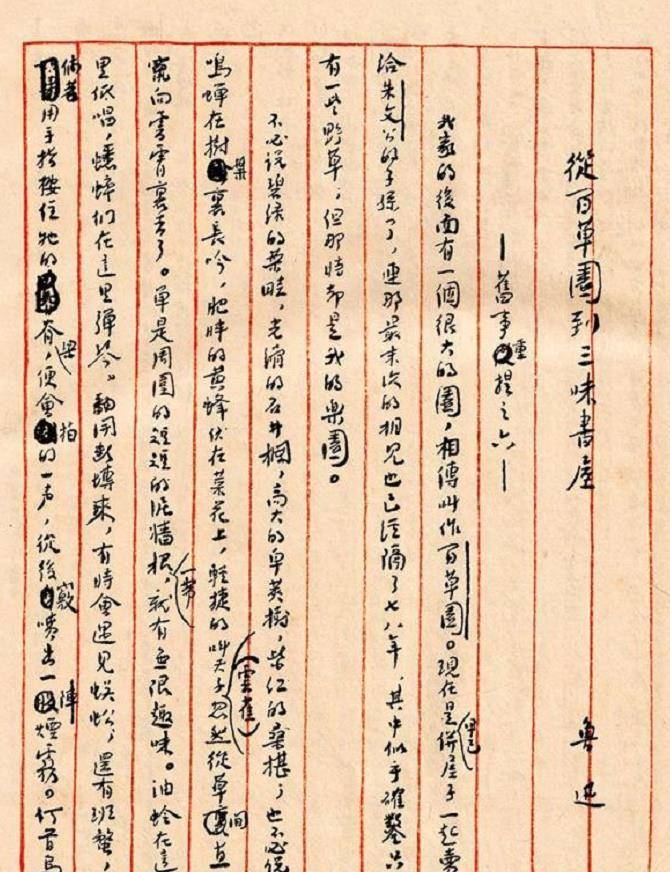 從百草園到三味書屋　魯迅
—舊事重提之六—
我家的後面有一個很大的園，相傳叫作百草園。現在是早已併屋子一起賣
給朱文公的子孫了，連那最末次的相見也已經隔了七八年，其中似乎確鑿只
有一些野草；但那時卻是我的樂園。
不必說碧綠的菜畦，光滑的石井欄，高大的皁莢樹，紫红的桑椹；也不必說
鳴蟬在樹葉裏長吟，肥胖的黄蜂伏在菜花上，輕捷的叫天子（雲雀）忽然從草間直
竄向雲霄裏去了。單是周圍的短短的泥墻根一带，就有無限趣味。油蛉在這
里低唱，蟋蟀們在這里彈琴。翻開斷塼來，有時會遇見蜈蚣；還有班蝥，
倘若用手指按住牠的脊梁，便會拍的一声，從後竅噴出一陣煙霧。何首烏